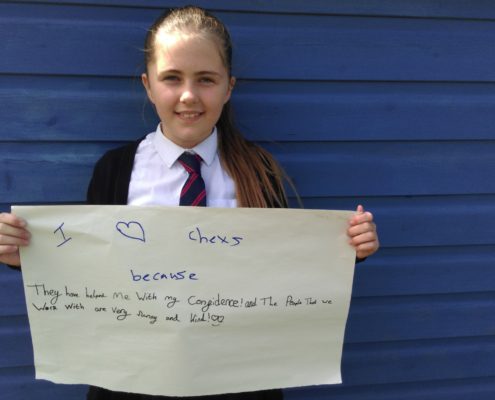 I ♡ chexs
because
They have helped me With my Confidence! and The People That we
Work With are very funny and kind! ♡♡